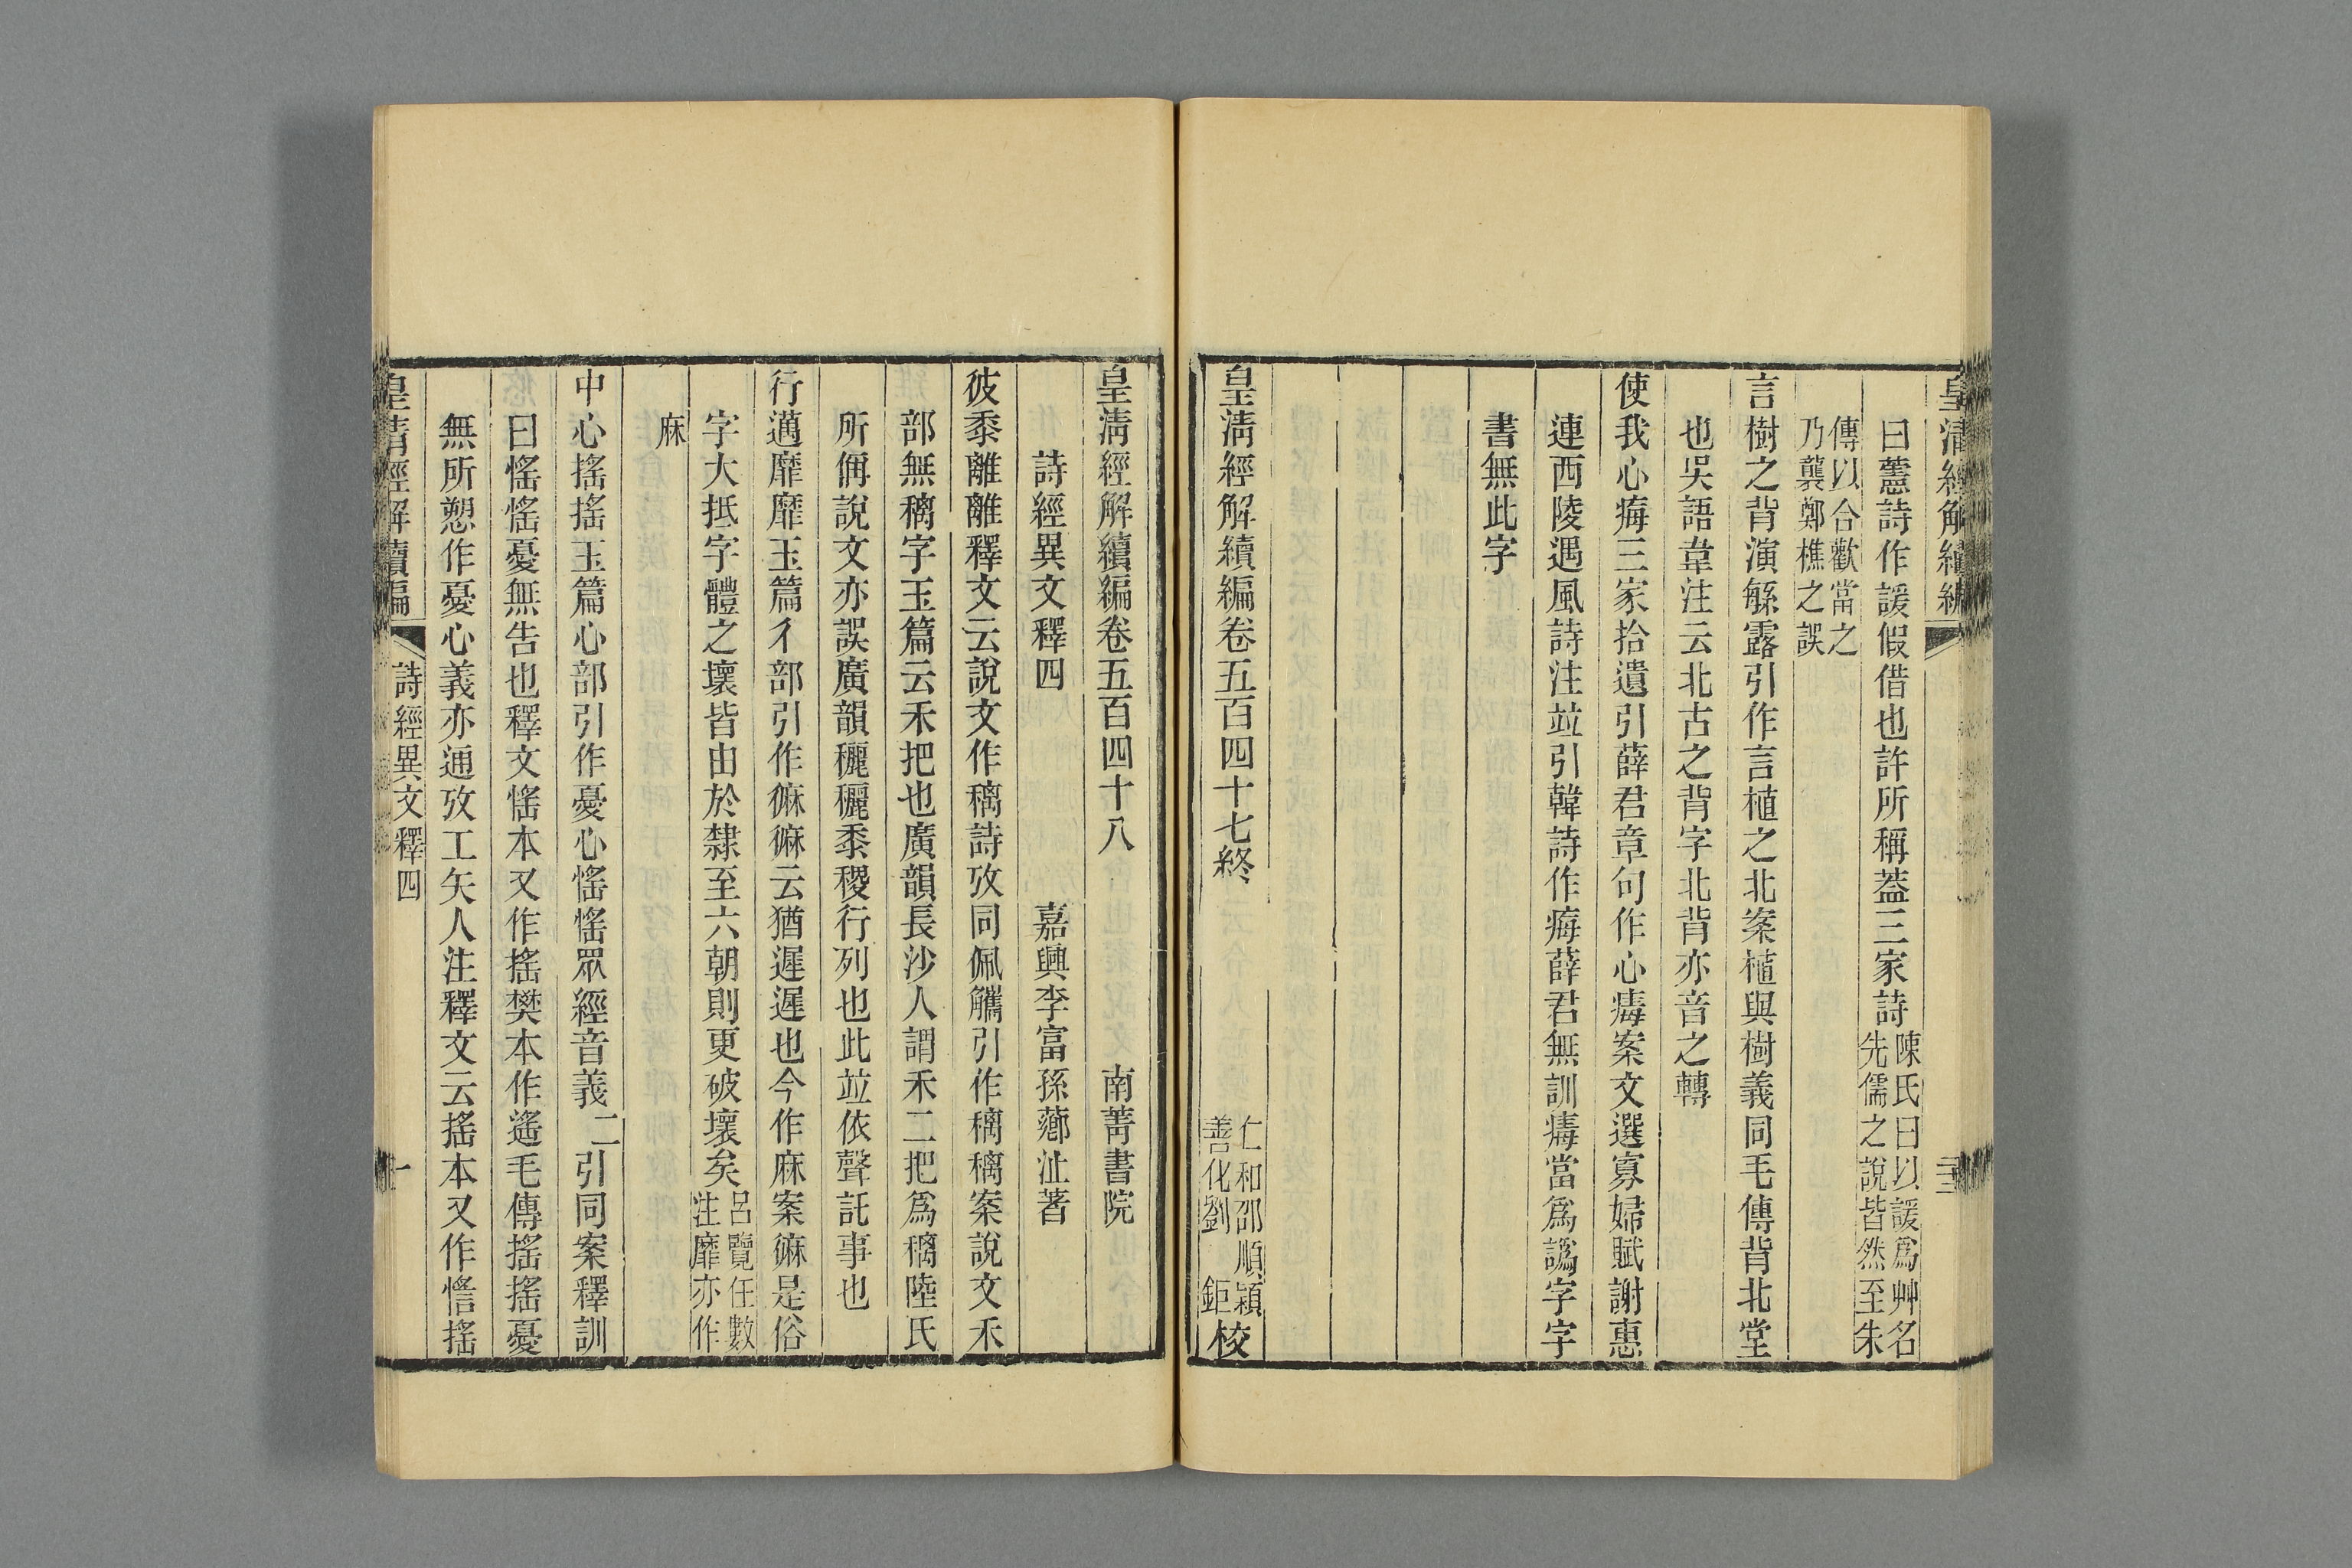 皇清經解續編
曰藼詩作諼假借也許所稱葢三家詩陳氏曰以諼爲艸名
先儒之說皆然至朱
傳以合歡當之
乃襲鄭樵之誤
言樹之背演緐露引作言植之北案植與樹義同毛傳背北堂
也吳語韋注云北古之背字北背亦音之轉
使我心痗三家拾遺引薛君章句作心痗案文選寡婦賦謝惠
連西陵遇風詩注竝引韓詩作痗薛君無訓痗當爲譌字字
書無此字
皇清經解續編卷五百四十七終
仁和邵順穎
善化劉 鉅校
皇淸經解續編卷五百四十八
南菁書院
詩經異文釋四
嘉興李富孫薌沚著
彼黍離離釋文云說文作穲詩攷同佩觿引作穲穲案說文禾
部無穲字玉篇云禾把也廣韻長沙人謂禾二把爲穲陸氏
所偁說文亦誤廣韻穲穲黍稷行列也此竝依聲託事也
行邁靡靡玉篇彳部引作𢕗𢕗云猶遲遲也今作麻案𢕗是俗
字大抵字體之壞皆由於隸至六朝則更破壞矣呂覽任數
注靡亦作
麻
中心搖搖玉篇心部引作憂心愮愮眾經音義二引同案釋訓
曰愮愮憂無告也釋文愮本又作搖樊本作遙毛傳搖搖憂
無所愬作憂心義亦通攷工矢人注釋文云搖本又作愮搖
皇清經解續編
詩經異文釋四
一